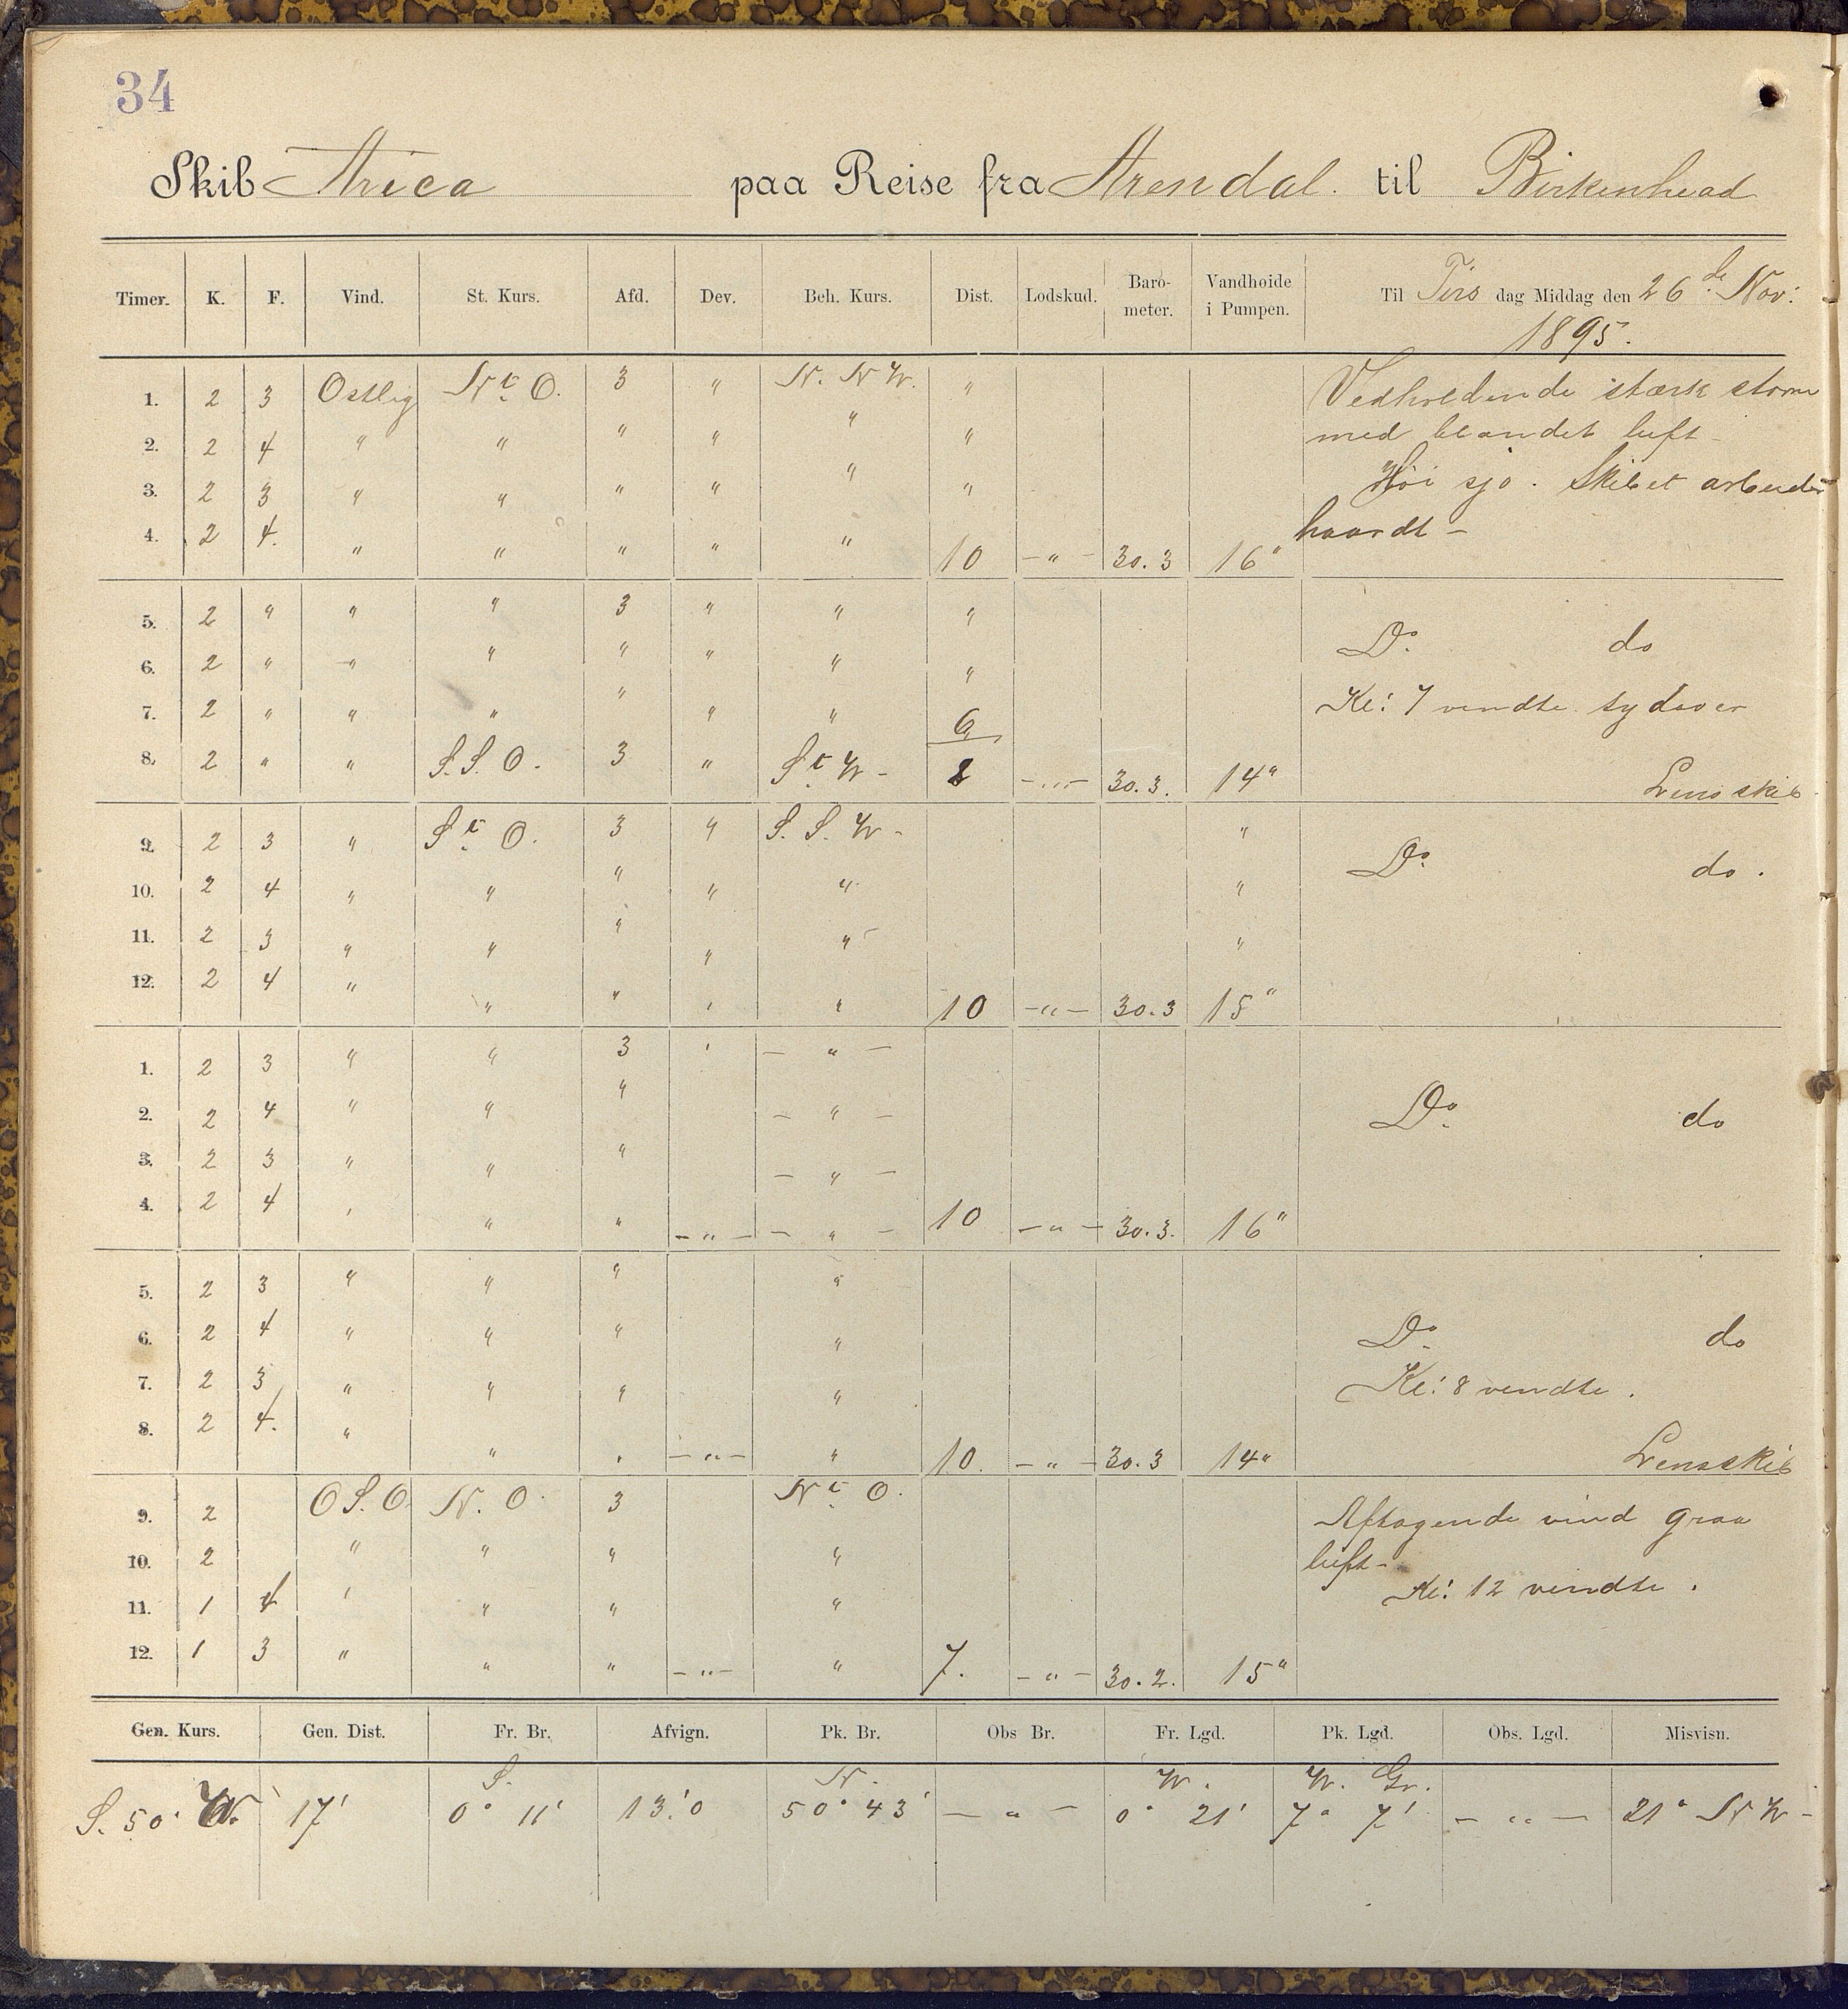 34
Skib Arica paa Reise fra Arendal. til Birkenhead
Timer. K. F. Vind. St. Kurs. Afd. Dev. Beh. Kurs. Dist. Lodskud. Baro-meter. Vandhoide i Pumpen. Til Tirs dag Middag den 26de Nov: 1895.
1. 2 3 Ostlig N t O. 3 " N. N W. " Vedholdende stærk storm
2. 2 4 " " " " " " med blandet luft -
3. 2 3 " " " " " " Høi sjø. Skibet arbeider
4. 2 4. " " " " " 10 - " - 30.3 16" haardt -
5. 2 " " " 3 " " " Do. do
6. 2 " " " " " " "
7. 2 " " " " " " 6 Kl: 7 vendte sydover
8. 2 " " S. S. O. 3 " S t W - 2 - " - 30.3. 14" Lens skib
9. 2 3 " S t O. 3 " S. S. W - " Do. do.
10. 2 4 " " " " " "
11. 2 3 " " " " " "
12. 2 4 " " " " " 10 - " - 30.3 15"
1. 2 3 " " 3 " - " -
2. 2 4 " " " - " - Do. do
3. 2 3 " " " - " -
4. 2 4 " " " - " - - " - 10 - " - 30.3. 16"
5. 2 3 " " " "
6. 2 4 " " " " Do. do
7. 2 3 " " " " Kl: 8 vendte.
8. 2 4. " " " - " - " 10. - " - 30.3 14" Lensskib
9. 2 O S. O. N. O. 3 N t O. Aftagende vind graa
10. 2 " " " " luft -
11. 1 4 " " " " Kl: 12 vendte.
12. 1 3 " " " - " - " 7. - " - 30.2. 15"
Gen. Kurs. Gen. Dist. Fr. Br. Afvign. Pk. Br. Obs Br. Fr. Lgd. Pk. Lgd. Obs. Lgd. Misvisn.
S. N. W. W. Gr.
S. 50° W. 17' 0° 11' 13.'0 50° 43' - " - 0° 21' 7° 7' - " - 21° N W -